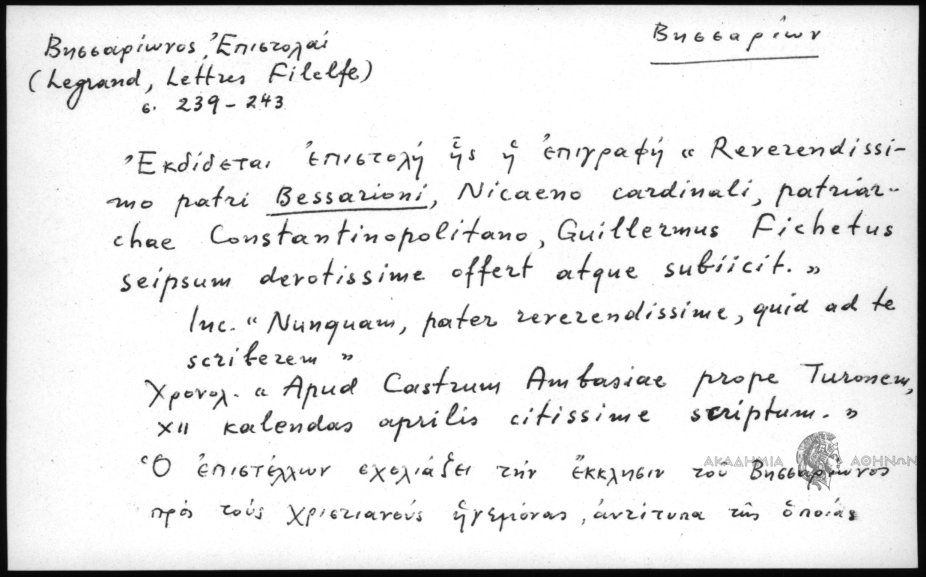 Βησσαρίων
Βησσαρίωνος, Ἐπιστολαί
(Legrand, Lettres Filelfe)
σ. 239-243
Ἐκδίδεται ἐπιστολή ἧς ἡ ἐπιγραφή « Reverendissi-
mo patri Bessarioni, Nicaeno cardinali, patriar-
chae Constantinopolitano, Guillermus Fichetus
seipsum devotissime offert atque subiicit. »
Inc. « Nunquam, pater reverendissime, quid ad te
scriberem »
Χρονολ. « Apud Castrum Ambasiae prope Turonem,
XII kalendas aprilis citissime scriptum. »
Ὁ ἐπιστέλλων σχολιάζει τήν ἔκκλησιν τοῦ Βησσαρίωνος
πρός τούς χριστιανούς ἡγεμόνας, ἀντίτυπα τῆς ὁποίας
ΑΚΑΔΗΜΙΑ ΑΘΗΝΩΝ